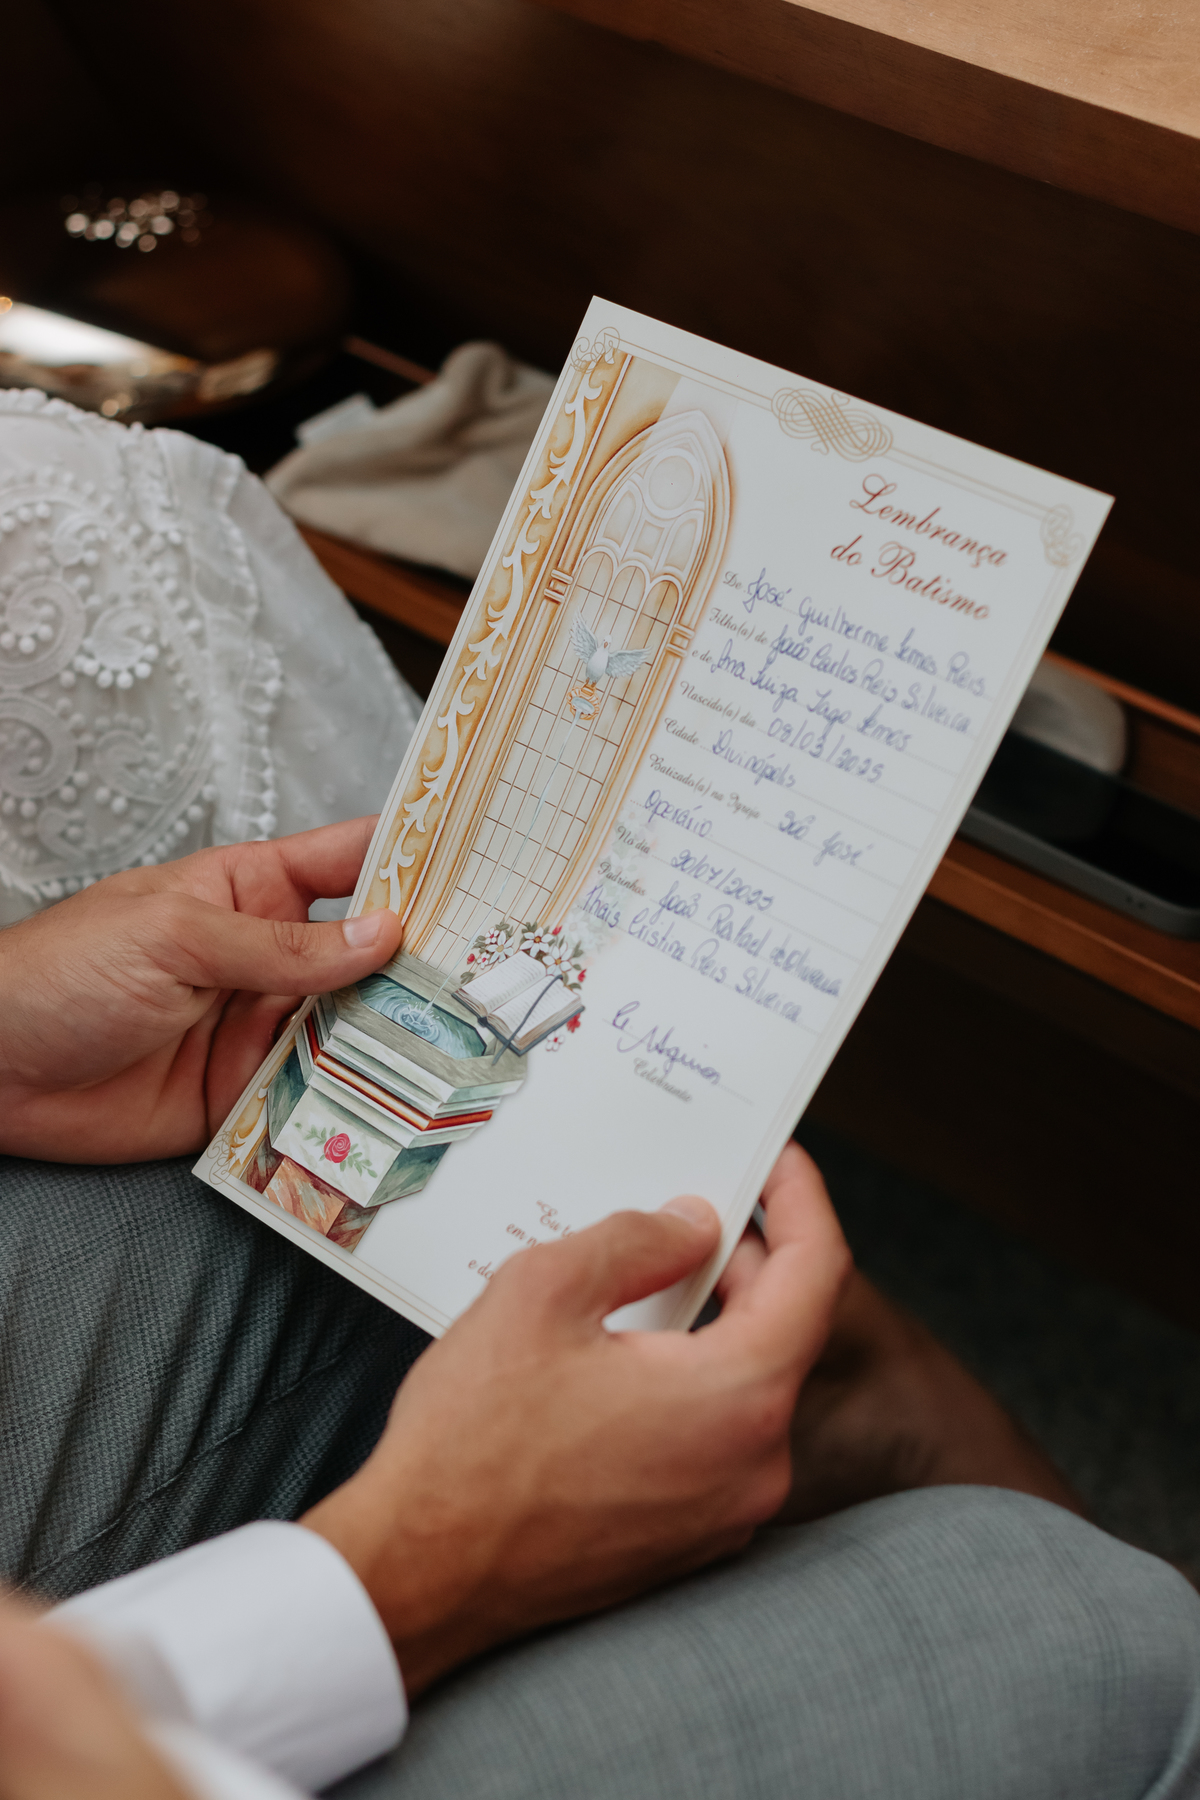 Lembrança
do Batismo
De José Guilherme Lemos Reis
Filho(a) de João Carlos Reis Silveira
e de Ana Luiza Lago Lemos
Nascido(a) dia 08/03/2025
Cidade Divinópolis
Batizado(a) na Igreja São José
Operário
No dia 20/07/2025
Padrinhos João Rafael de Oliveira
Thais Cristina Reis Silveira
Celebrante
"Eu
em
e do